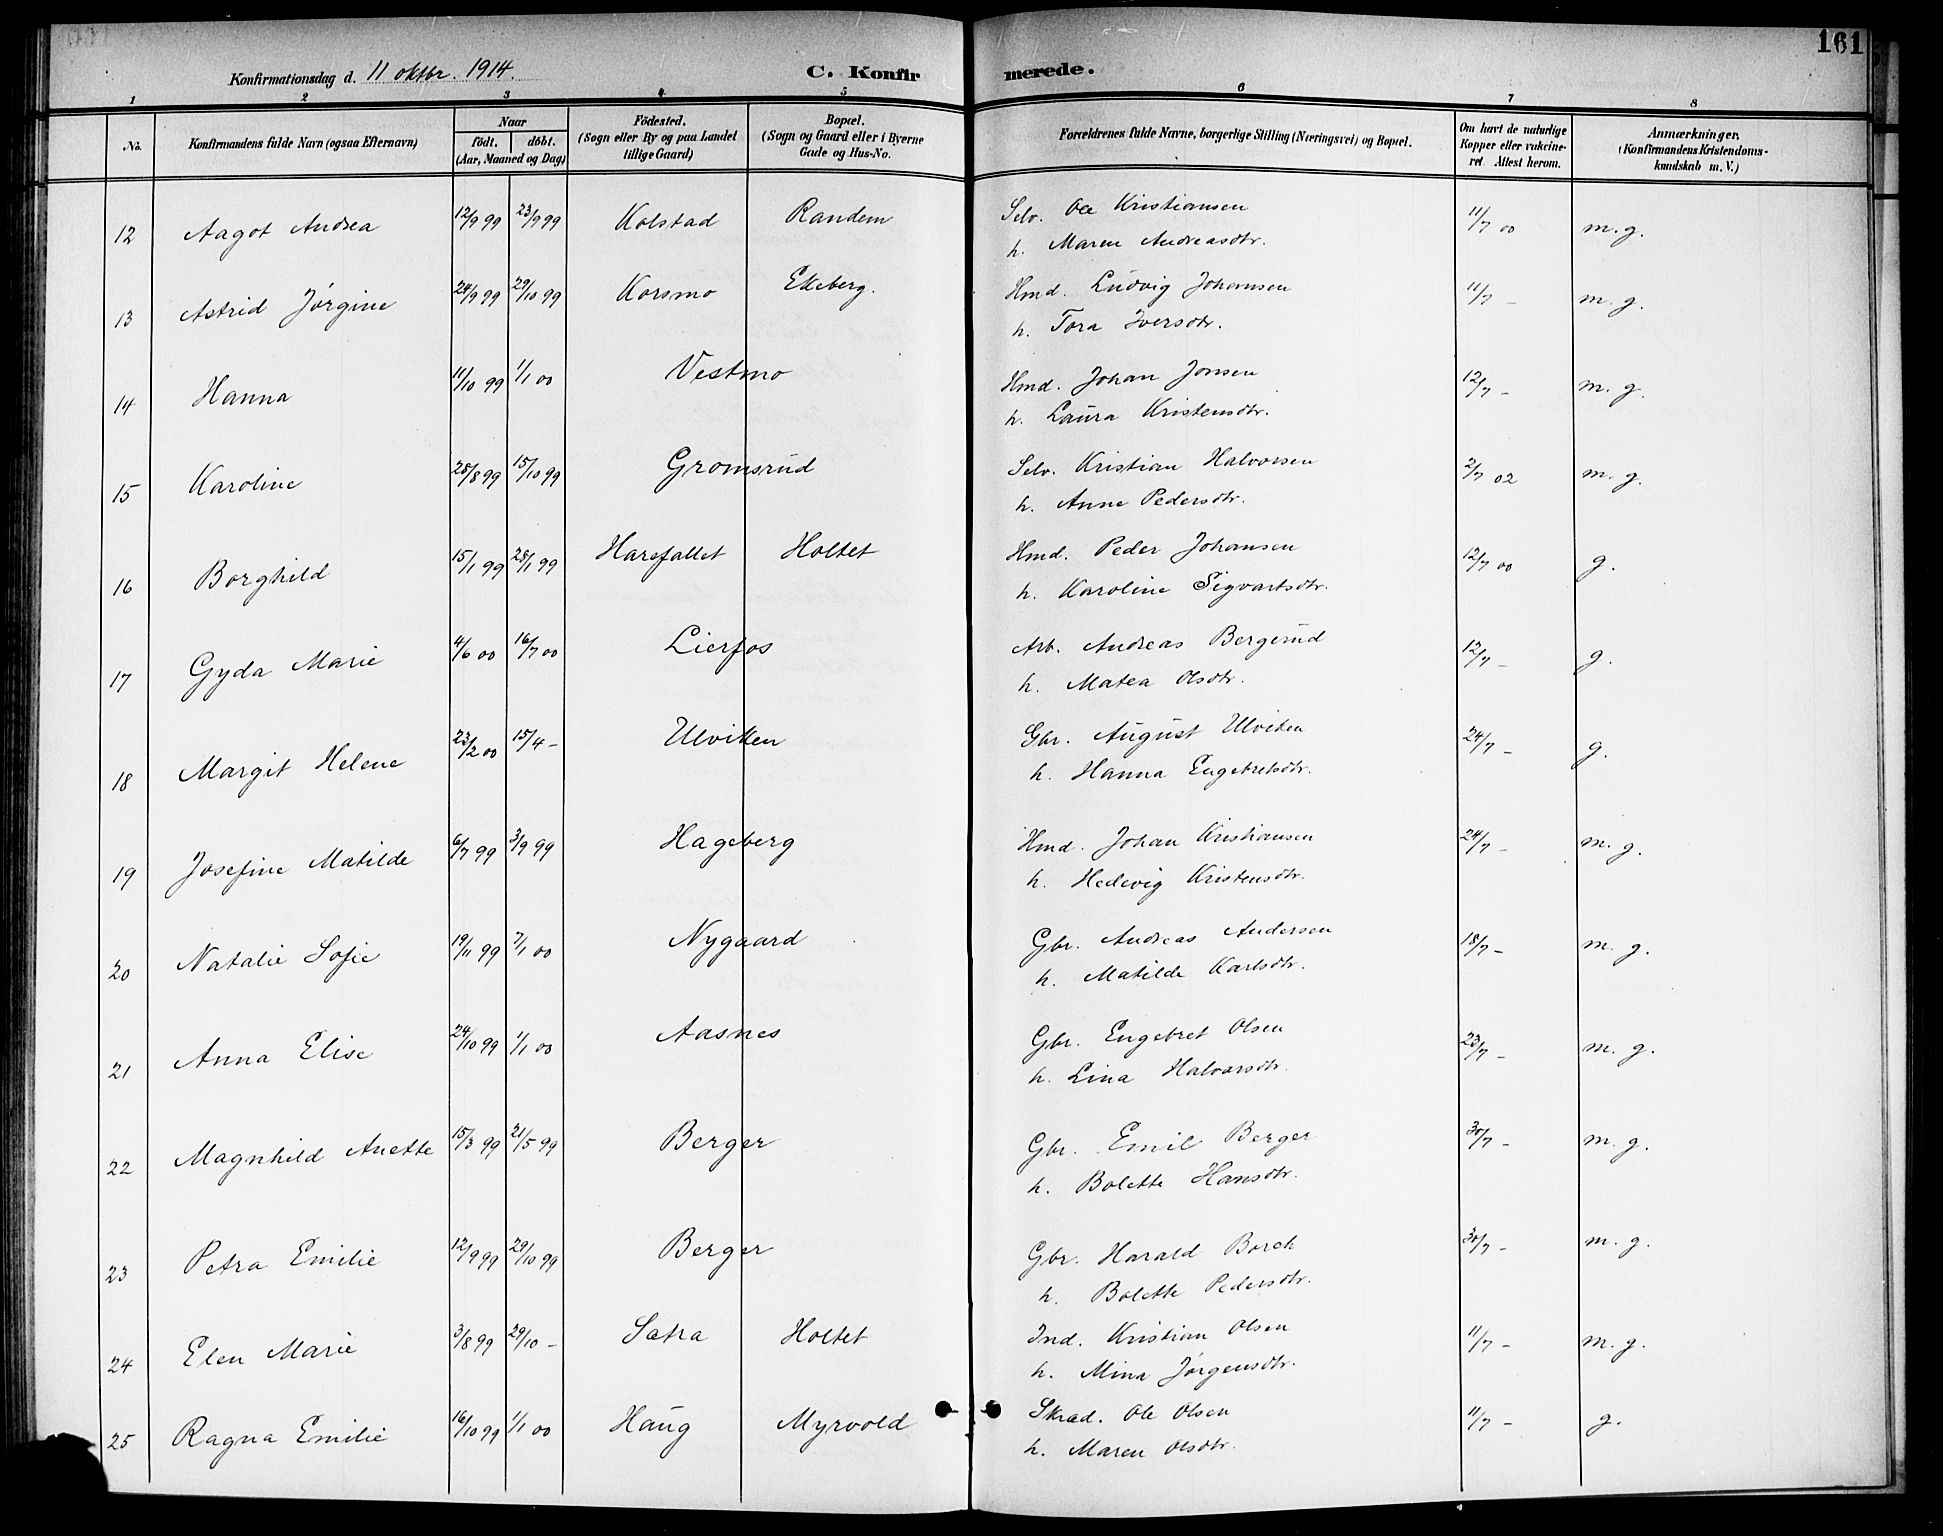 161
Konfirmationsdag d. 11 oktbr. 1914. C. Konfirmerede.
1 2 3 4 5 6 7 8
No. Konfirmandens fulde Navn (ogsaa Efternavn) Naar födt. döbt. (Aar, Maaned og Dag) Födested. (Sogn eller By og paa Landet tillige Gaard) Bopæl. (Sogn og Gaard eller i Byerne Gade og Hus-No. Forældrenes fulde Navne, borgerlige Stilling (Næringsvei) og Bopæl. Om havt de naturlige Kopper eller vakcineret Attest herom. Anmærkninger. (Konfirmandens Kristendomskundskab m. V.)
12 Aagot Andrea 12/9 99 23/9 99 Kolstad Randem Selv. Ole Kristiansen 11/7 00 m. g.
h. Maren Andreasdtr.
13 Astrid Jørgine 24/9 99 29/10 99 Korsmo Ekeberg. Hmd. Ludvig Johansen 11/7 - m. g.
h. Tora Iversdtr.
14 Hanna 11/10 99 1/1 00 Vestmo Hmd. Johan Jonsen 12/7 - m. g.
h. Laura Kristensdtr.
15 Karoline 28/8 99 15/10 99 Gromsrud Selv. Kristian Halvorsen 2/7 02 m. g.
h. Anne Pedersdtr.
16 Borghild 15/1 99 28/1 99 Harefallet Holtet Hmd. Peder Johansen 12/7 00 g.
h. Karoline Sigvartsdtr.
17 Gyda Marie 4/6 00 16/7 00 Lierfos Arb. Andreas Bergerud 12/7 - g.
h. Matea Olsdtr.
18 Margit Helene 23/2 00 15/4 - Ulviken Gbr. August Ulviken 24/7 - g.
h. Hanna Engebretsdtr.
19 Josefine Matilde 6/7 99 3/9 99 Hageberg Hmd. Johan Kristiansen 24/7 - m. g.
h. Hedevig Kristensdtr.
20 Natalie Sofie 19/11 99 7/1 00 Nygaard Gbr. Andreas Andersen 18/7 - m. g.
h. Matilde Karlsdtr.
21 Anna Elise 24/10 99 1/1 00 Aasnes Gbr. Engebret Olsen 23/7 - m. g.
h. Lina Halvorsdtr.
22 Magnhild Anette 15/3 99 21/5 99 Berger Gbr. Emil Berger 30/7 - m. g.
h. Bolette Hansdtr.
23 Petra Emilie 12/9 99 29/10 99 Berger Gbr. Harald Borch 30/7 - m. g.
h. Bolette Pedersdtr.
24 Elen Marie 3/8 99 29/10 - Satra Holtet Ind. Kristian Olsen 11/7 - m. g.
h. Mina Jørgensdtr.
25 Ragna Emilie 16/10 99 1/1 00 Haug Myrvold Skræd. Ole Olsen 11/7 - g.
h. Maren Olsdtr.